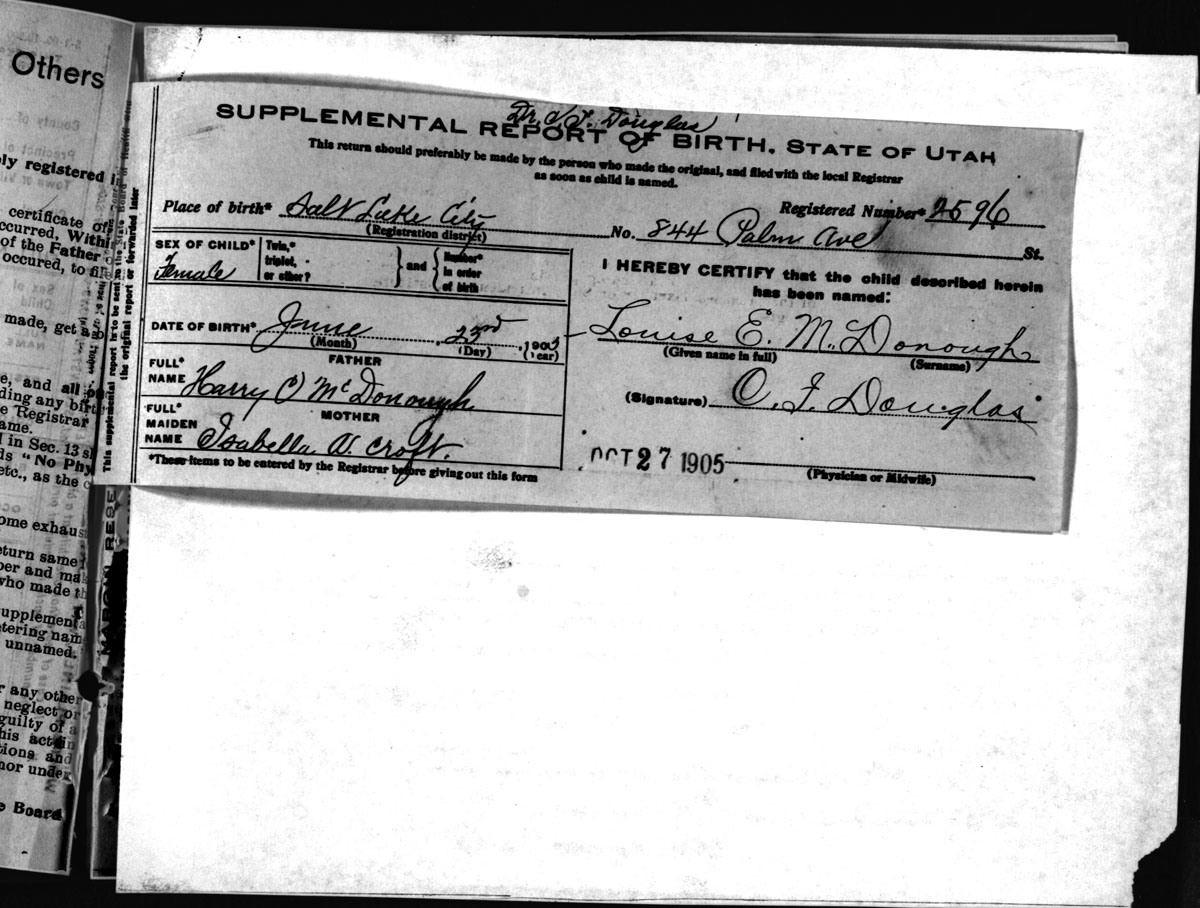 Others
ly registered i
certificate of
ccurred. With
of the Father
occured, to fil
made, get a
e, and all
ding any birt
e Registrar
ame.
l in Sec. 13 s
ds "No Phy
etc., as the c
ome exhaus
eturn same
per and mak
who made th
upplementa
tering nam
unnamed.
r any other
neglect or
guilty of a
his act in
tions and
nor under
e Board
This supplemental report is to be sent to the State Board of Health
the original report or forwarded later
MARGIN RESE
Dr. O J. Douglas
SUPPLEMENTAL REPORT OF BIRTH, STATE OF UTAH
This return should preferably be made by the person who made the original, and filed with the local Registrar
as soon as child is named.
Registered Number* 2596
Place of birth* Salt Lake City No. 844 Palm Ave St.
(Registration district)
SEX OF CHILD* Female
Twin,* triplet, or other? } and { Number* in order of birth
DATE OF BIRTH* June 23rd, 1905
(Month) (Day) (Year)
FATHER
FULL* NAME Harry O McDonough
MOTHER
FULL* MAIDEN NAME Isabella V. Croft.
*These items to be entered by the Registrar before giving out this form
I HEREBY CERTIFY that the child described herein
has been named:
Louise E. McDonough
(Given name in full) (Surname)
(Signature) O. J. Douglas
OCT 27 1905
(Physician or Midwife)